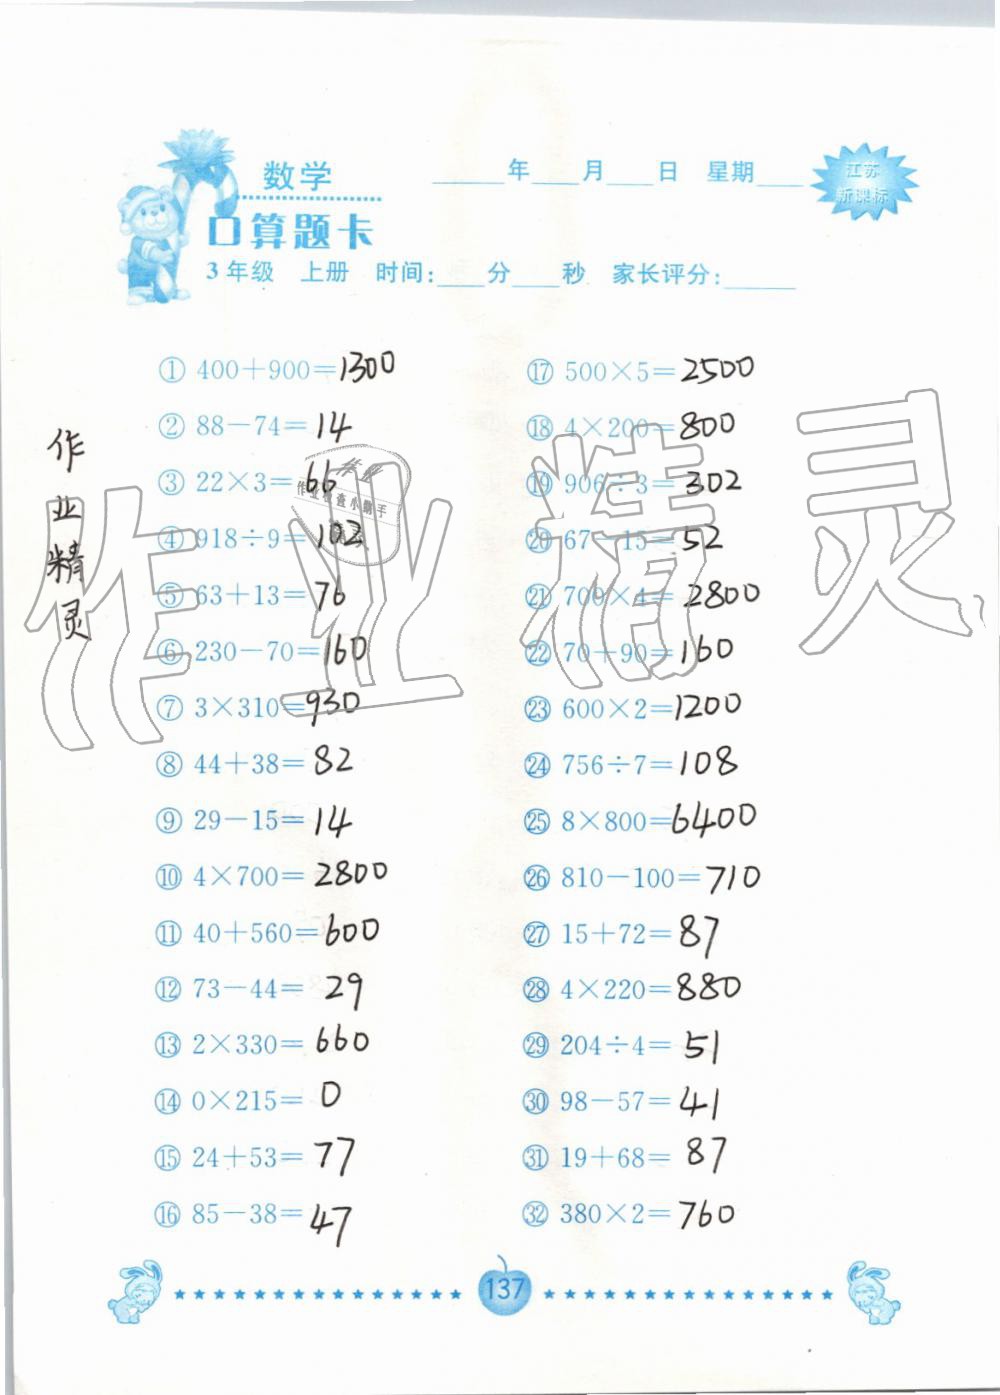 数学
____年____月____日 星期____
江苏
新课标
口算题卡
3年级 上册 时间:____分____秒 家长评分:____
① 400+900=1300
② 88-74=14
③ 22×3=66
④ 918÷9=102
⑤ 63+13=76
⑥ 230-70=160
⑦ 3×310=930
⑧ 44+38=82
⑨ 29-15=14
⑩ 4×700=2800
⑪ 40+560=600
⑫ 73-44=29
⑬ 2×330=660
⑭ 0×215=0
⑮ 24+53=77
⑯ 85-38=47
⑰ 500×5=2500
⑱ 4×200=800
⑲ 906÷3=302
⑳ 67-15=52
㉑ 700×4=2800
㉒ 70+90=160
㉓ 600×2=1200
㉔ 756÷7=108
㉕ 8×800=6400
㉖ 810-100=710
㉗ 15+72=87
㉘ 4×220=880
㉙ 204÷4=51
㉚ 98-57=41
㉛ 19+68=87
㉜ 380×2=760
作业精灵
作业精灵
作业
作业检查小助手
137